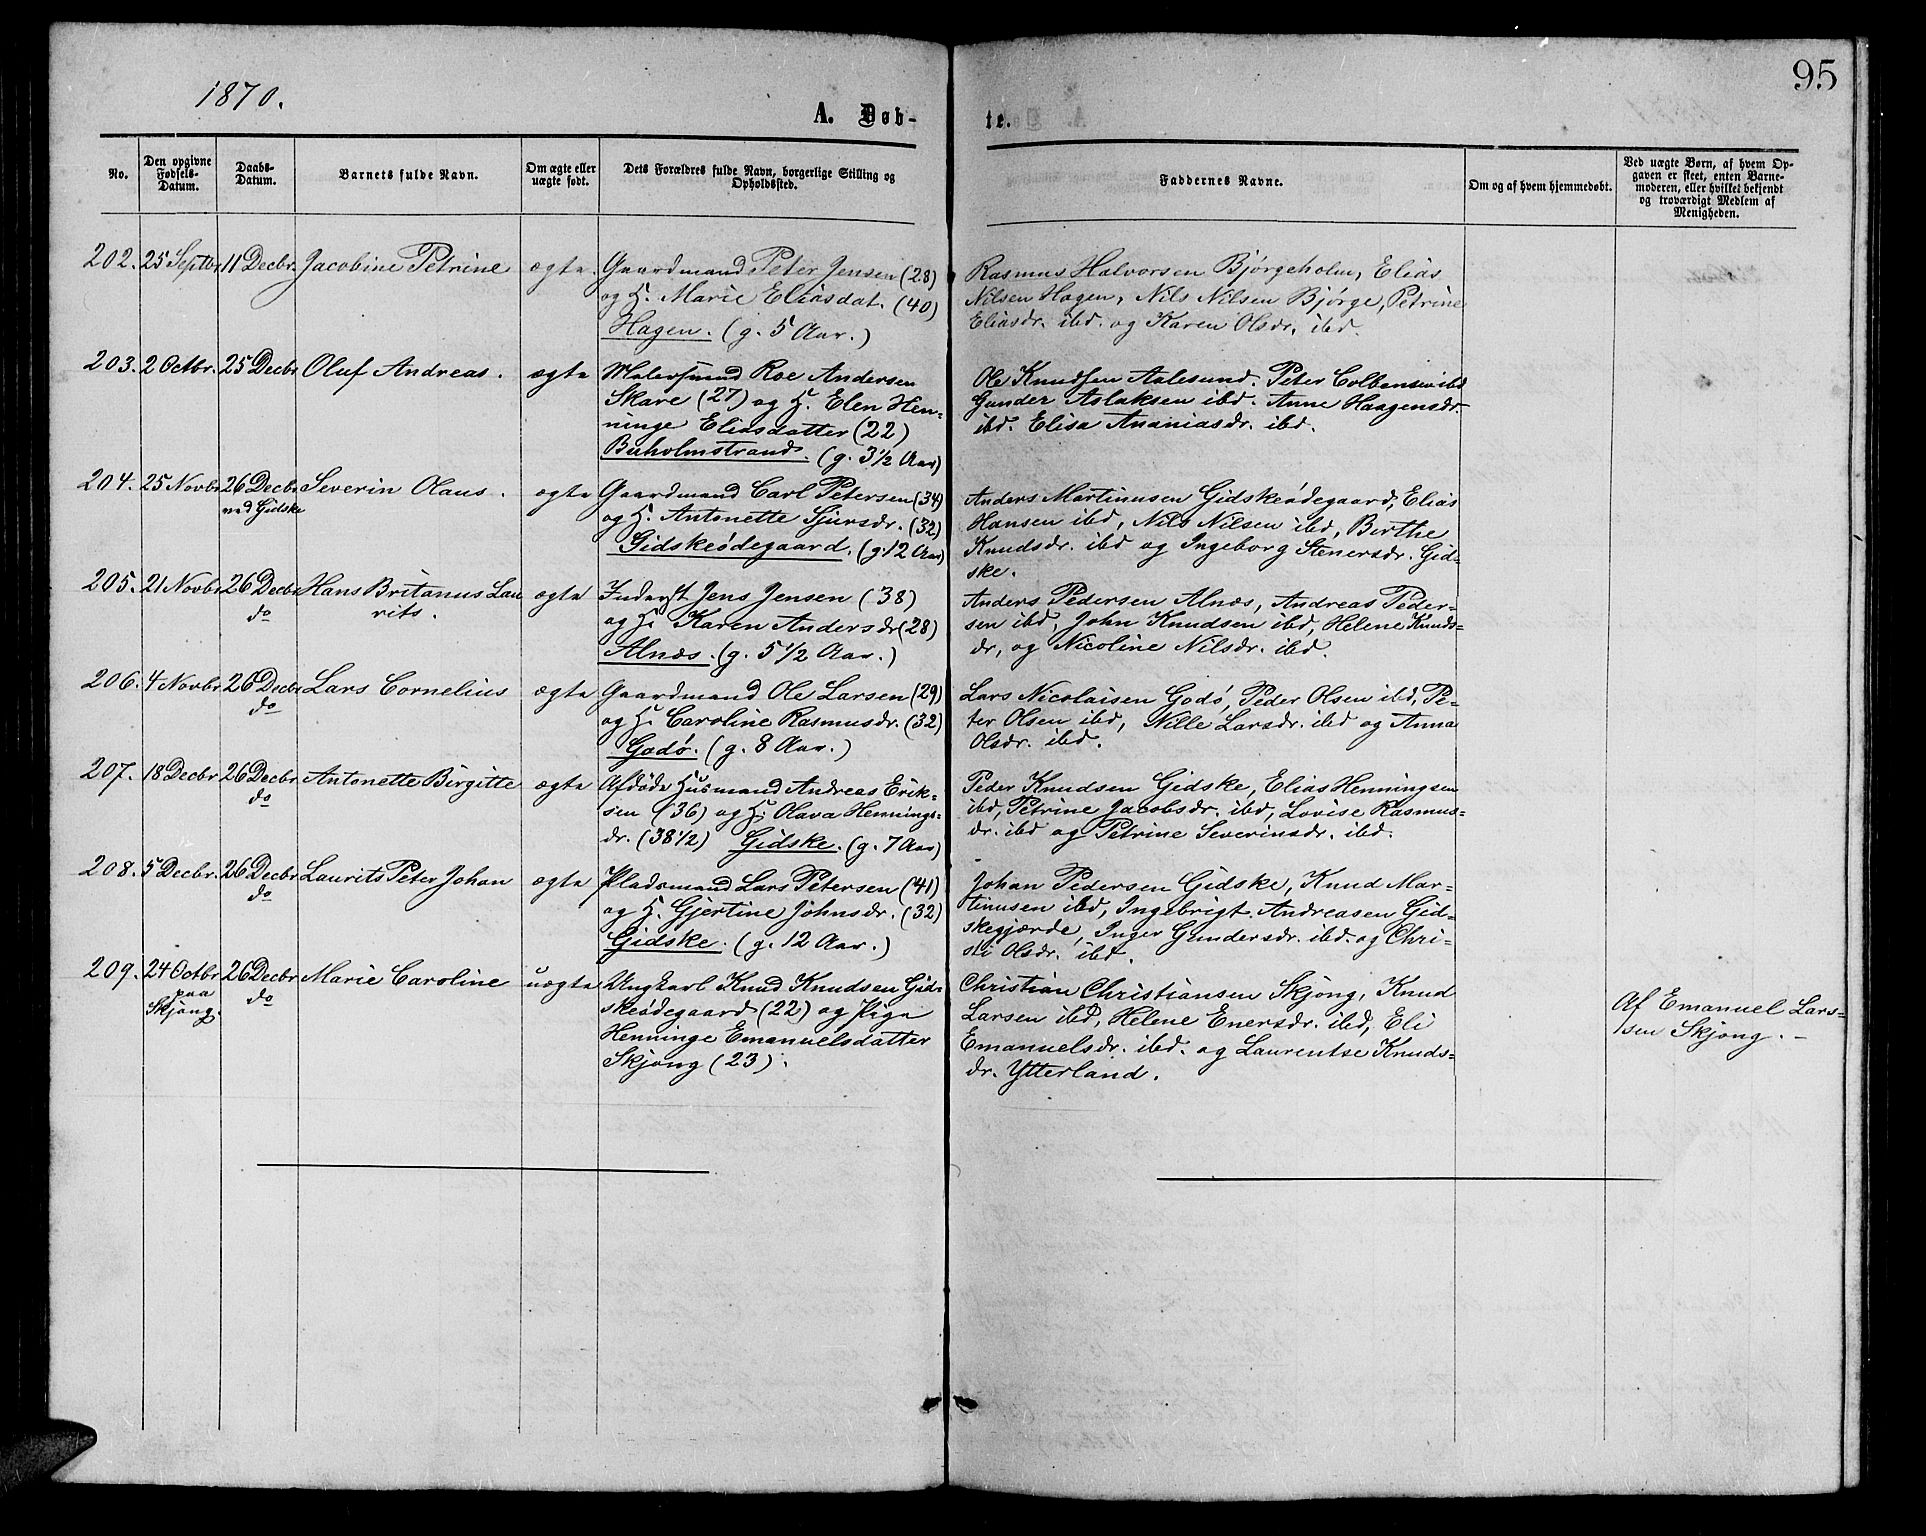 1870.
95
A. Døb-
te.
No.
Den opgivne
Fødsels-
Datum.
Daabs-
Datum.
Barnets fulde Navn.
Om ægte eller
uægte født.
Dets Forældres fulde Navn, borgerlige Stilling og
Opholdssted.
Faddernes Navne.
Om og af hvem hjemmedøbt.
Ved uægte Børn, af hvem Op-
gaven er skeet, enten Barne-
moderen, eller hvilket bekjendt
og troværdigt Medlem af
Menigheden.
202. 25 Septbr. 11 Decbr. Jacobine Petrine ægte. Gaardmand Peter Jensen (28)
og H. Marie Eliasdat. (40)
Hagen. (g. 5 Aar.)
Rasmus Halvorsen Bjørgeholm, Elias
Nilsen Hagen, Nils Nilsen Bjørge, Petrine
Eliasdr. ibd. og Karen Olsdr. ibd.
203. 2 Octbr. 25 Decbr Oluf Andreas. ægte Malersvend Roe Andersen
Skare (27) og H. Elen Hen-
ninge Eliasdatter (22)
Buholmstrand. (g. 3 1/2 Aar)
Ole Knudsen Aalesund. Peter Colbensen ibd
Gunder Aslaksen ibd. Anne Haagensdr.
ibd. Elisa Ananiasdr. ibd.
204. 25 Novbr 26 Decbr Severin Olaus. ægte Gaardmand Carl Petersen (34)
ved Gidske
og H. Antonette Sjursdr. (32)
Gidskeødegaard. (g. 12 Aar)
Anders Martinusen Gidskeødegaard, Elias
Hansen ibd, Nils Nilsen ibd, Birthe
Knudsdr. ibd og Ingeborg Stenersdr. Gid-
ske.
205. 21 Novbr 26 Decbr Hans Britanus Lau
do
rits.
ægte Inderst Jens Jensen (38)
og H. Karen Andersdr (28)
Alnæs. (g. 5 1/2 Aar.)
Anders Pedersen Alnæs, Andreas Peder-
sen ibd, John Knudsen ibd, Helene Knuds-
dr, og Nicoline Nilsdr. ibd.
206. 4 Novbr 26 Decbr Lars Cornelius ægte Gaardmand Ole Larsen (29)
do
og H. Caroline Rasmusdr. (32)
Godø. (g. 8 Aar.)
Lars Nicolaisen Godø, Peder Olsen ibd, Pe-
ter Olsen ibd, Nille Larsdr. ibd og Anna
Olsdr. ibd.
207. 18 Decbr 26 Decbr Antonette Birgitte ægte Afdøde Husmand Andreas Erik-
do
sen (36) og H. Olava Hennings-
dr. (38 1/2) Gidske. (g. 7 Aar)
Peder Knudsen Gidske, Elias Henningsen
ibd, Petrine Jacobsdr. ibd, Lovise Rasmus-
dr. ibd og Petrine Severinsdr. ibd.
208. 5 Decbr. 26 Decbr Laurits Peter Johan ægte Pladsmand Lars Petersen (41)
do
og H. Gjertine Johnsdr. (32)
Gidske. (g. 12 Aar.)
Johan Pedersen Gidske, Knud Mar-
tinusen ibd, Ingebrigt Andreasen Gid-
skegjærde, Inger Gundersdr. ibd. og Chri-
sti Olsdr. ibd.
209. 24 Octbr 26 Decbr Marie Caroline uægte Ungkarl Knud Knudsen Gid-
paa
Skjong.
do
skeødegaard (22) og Pige
Henninge Emanuelsdatter
Skjong (23).
Christian Christiansen Skjong, Knud
Larsen ibd, Helene Enersdr. ibd, Eli
Emanuelsdr. ibd. og Laurentse Knuds-
dr. Ytterland.
Af Emanuel Lars-
sen Skjong. –